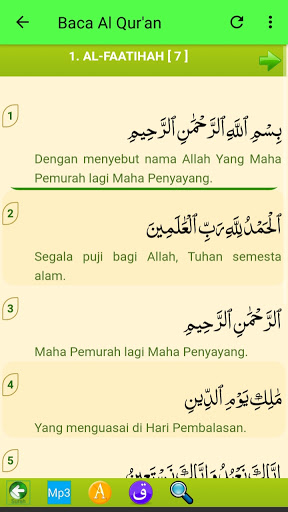 Baca Al Qur'an
1. AL-FAATIHAH [ 7 ]
1
بِسْمِ اللَّهِ الرَّحْمَٰنِ الرَّحِيمِ
Dengan menyebut nama Allah Yang Maha
Pemurah lagi Maha Penyayang.
2
الْحَمْدُ لِلَّهِ رَبِّ الْعَالَمِينَ
Segala puji bagi Allah, Tuhan semesta
alam.
3
الرَّحْمَٰنِ الرَّحِيمِ
Maha Pemurah lagi Maha Penyayang.
4
مَالِكِ يَوْمِ الدِّينِ
Yang menguasai di Hari Pembalasan.
5
إِيَّاكَ نَعْبُدُ وَإِيَّاكَ نَسْتَعِينُ
Mp3
A
ق